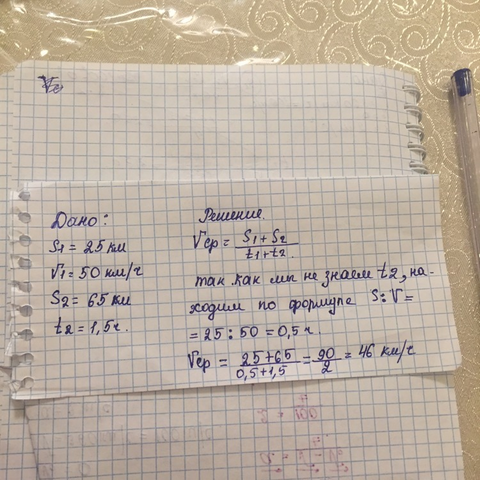 Vс
Дано:
S1 = 25 км
V1 = 50 км/ч
S2 = 65 км
t2 = 1,5ч.
Решение.
Vср = S1 + S2 / t1 + t2.
так как мы не знаем t2, на-
ходим по формуле S:V =
= 25 : 50 = 0,5 ч.
Vср = 25+65 / 0,5+1,5 = 90 / 2 = 46 км/ч